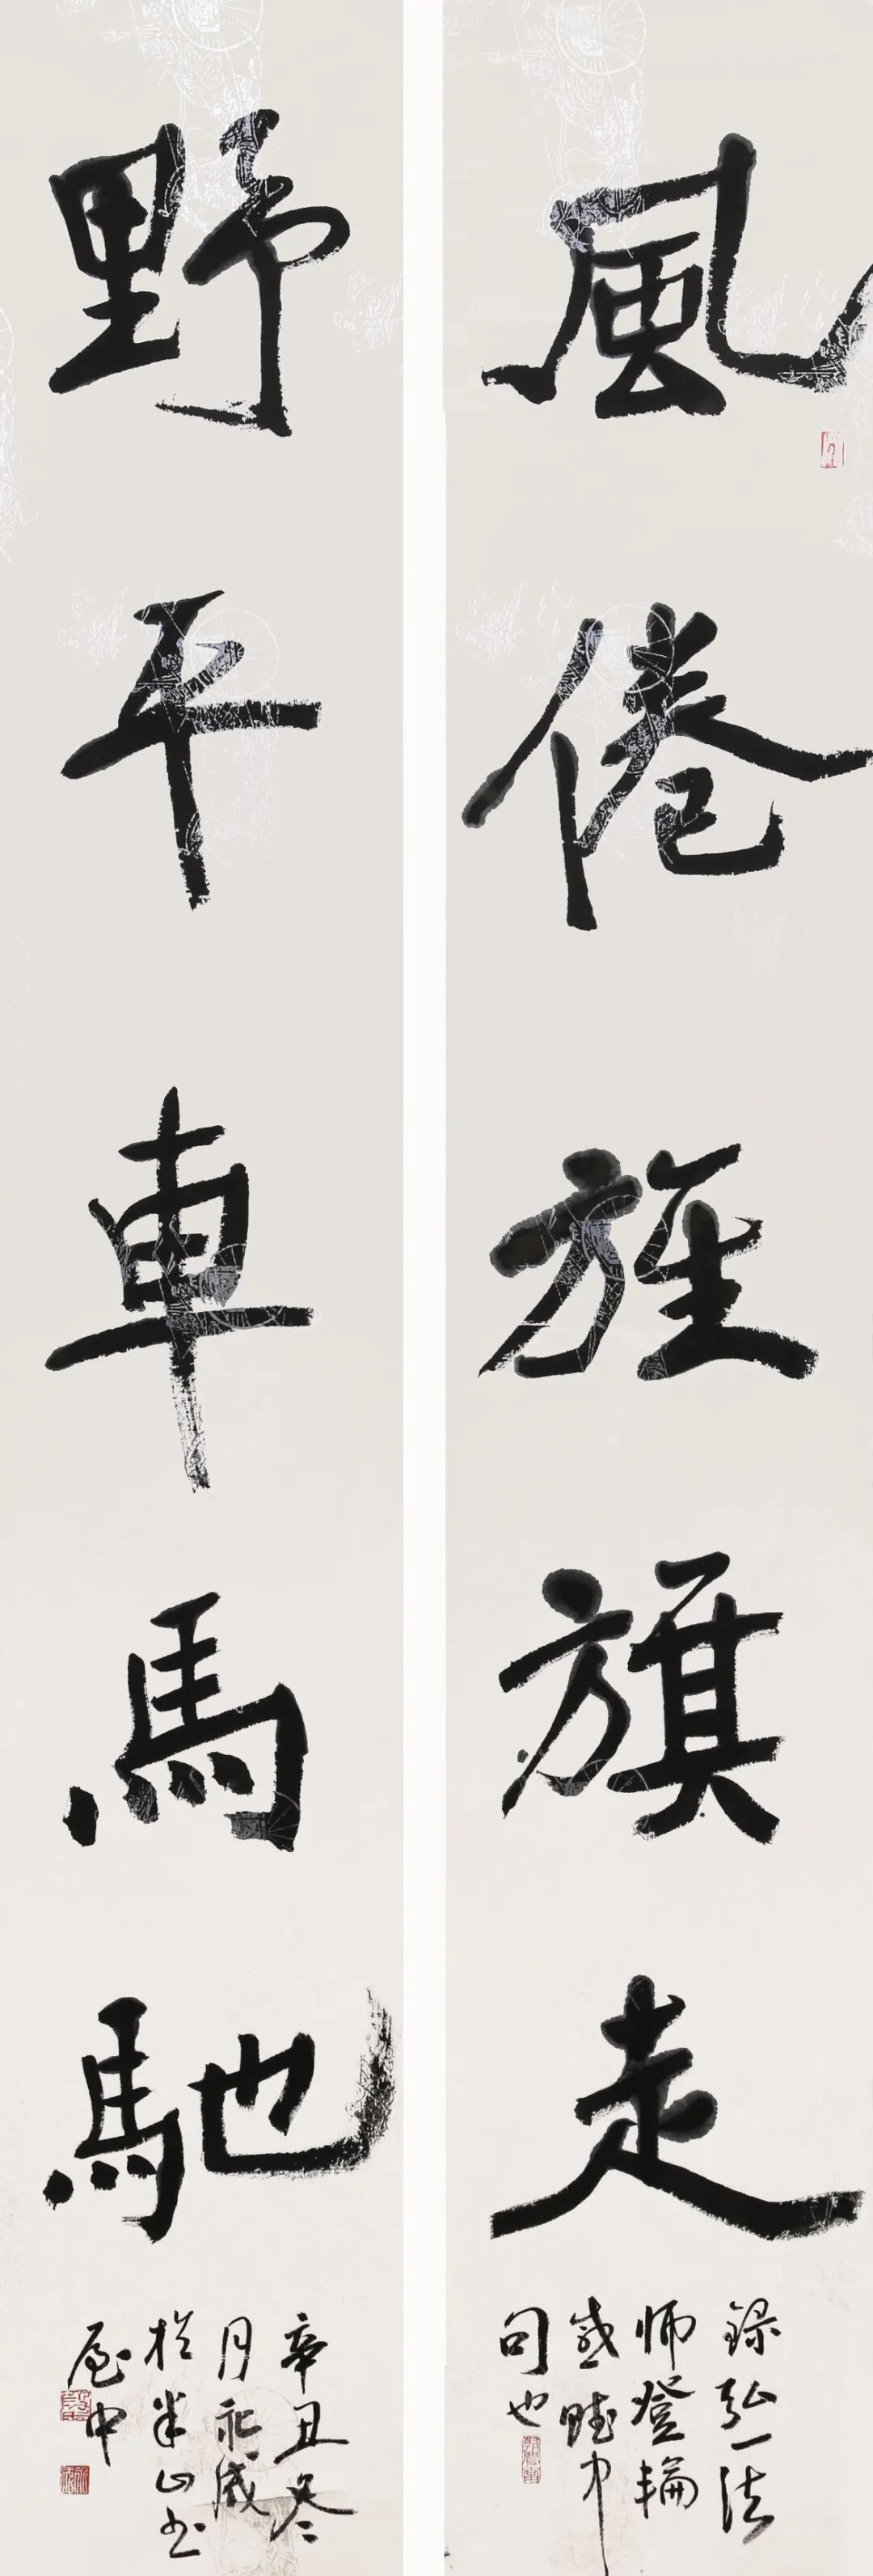 風倦旌旗走
錄弘一法
师登輪
感賦中
句也
野平車馬馳
辛丑冬
月
於半山书
屋中